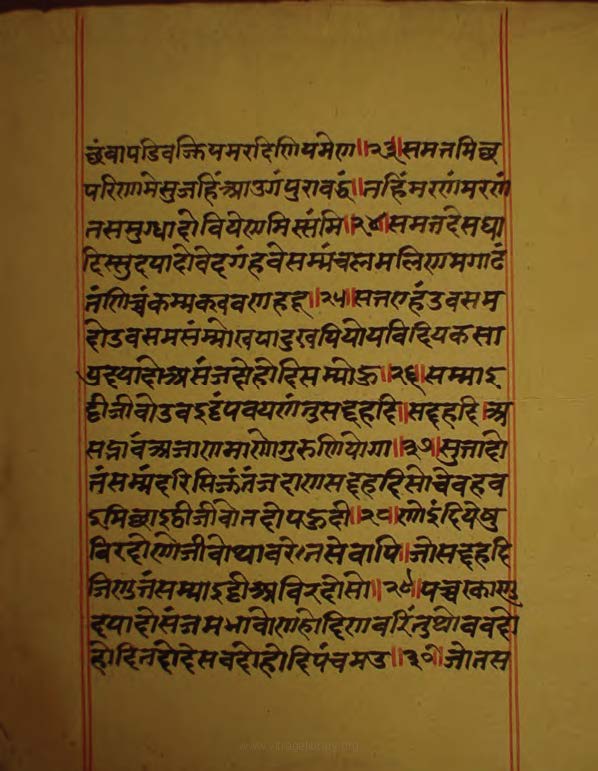 छंवापडिवज्जियमरदिणियमेण॥२३॥समत्तमिछ
परिणामेसुजहिंआउगंपुरावद्धं॥तहिंमरणंमरणं
तसमुग्घादोवियेणमिस्संमि॥२४॥समत्तदेसघा
दिस्सुदयादोवेदगंहवेसम्मंचलमलिणमगाढं
तंणिच्चंकम्मकखवणहेदू॥२५॥सत्तण्हंउवसम
दोउवसमसंम्मोखयादुखयियोयविदियकसा
युदयादोअसंजदोहोदिसम्मोऊ॥२६॥सम्माइ
ट्ठीजीवोउवइट्ठंपवयणंतुसद्दहदि॥सद्दहदि।अ
सद्भावंअजाणमाणोगुरुणियोगा॥२७॥सुत्तादो
तंसम्मंदरिसिज्जंतंजदाणसद्दहदिसोचेवहव
इमिछाइठीजीवोतदोपऊदी॥२८॥णोइंदियेसु
विरदोणोजीवोथावरेतसेवापि।जोसद्दहदि
जिणुत्तंसम्माइट्ठीअविरदोसो॥२९॥पच्चखाणु
दयादोसंजमभावोणहोदिणवरिंतुथोववदो
होदितदोदेसवदोहोदिपंचमउ॥३०॥जोतस
www.vitragelibrary.org